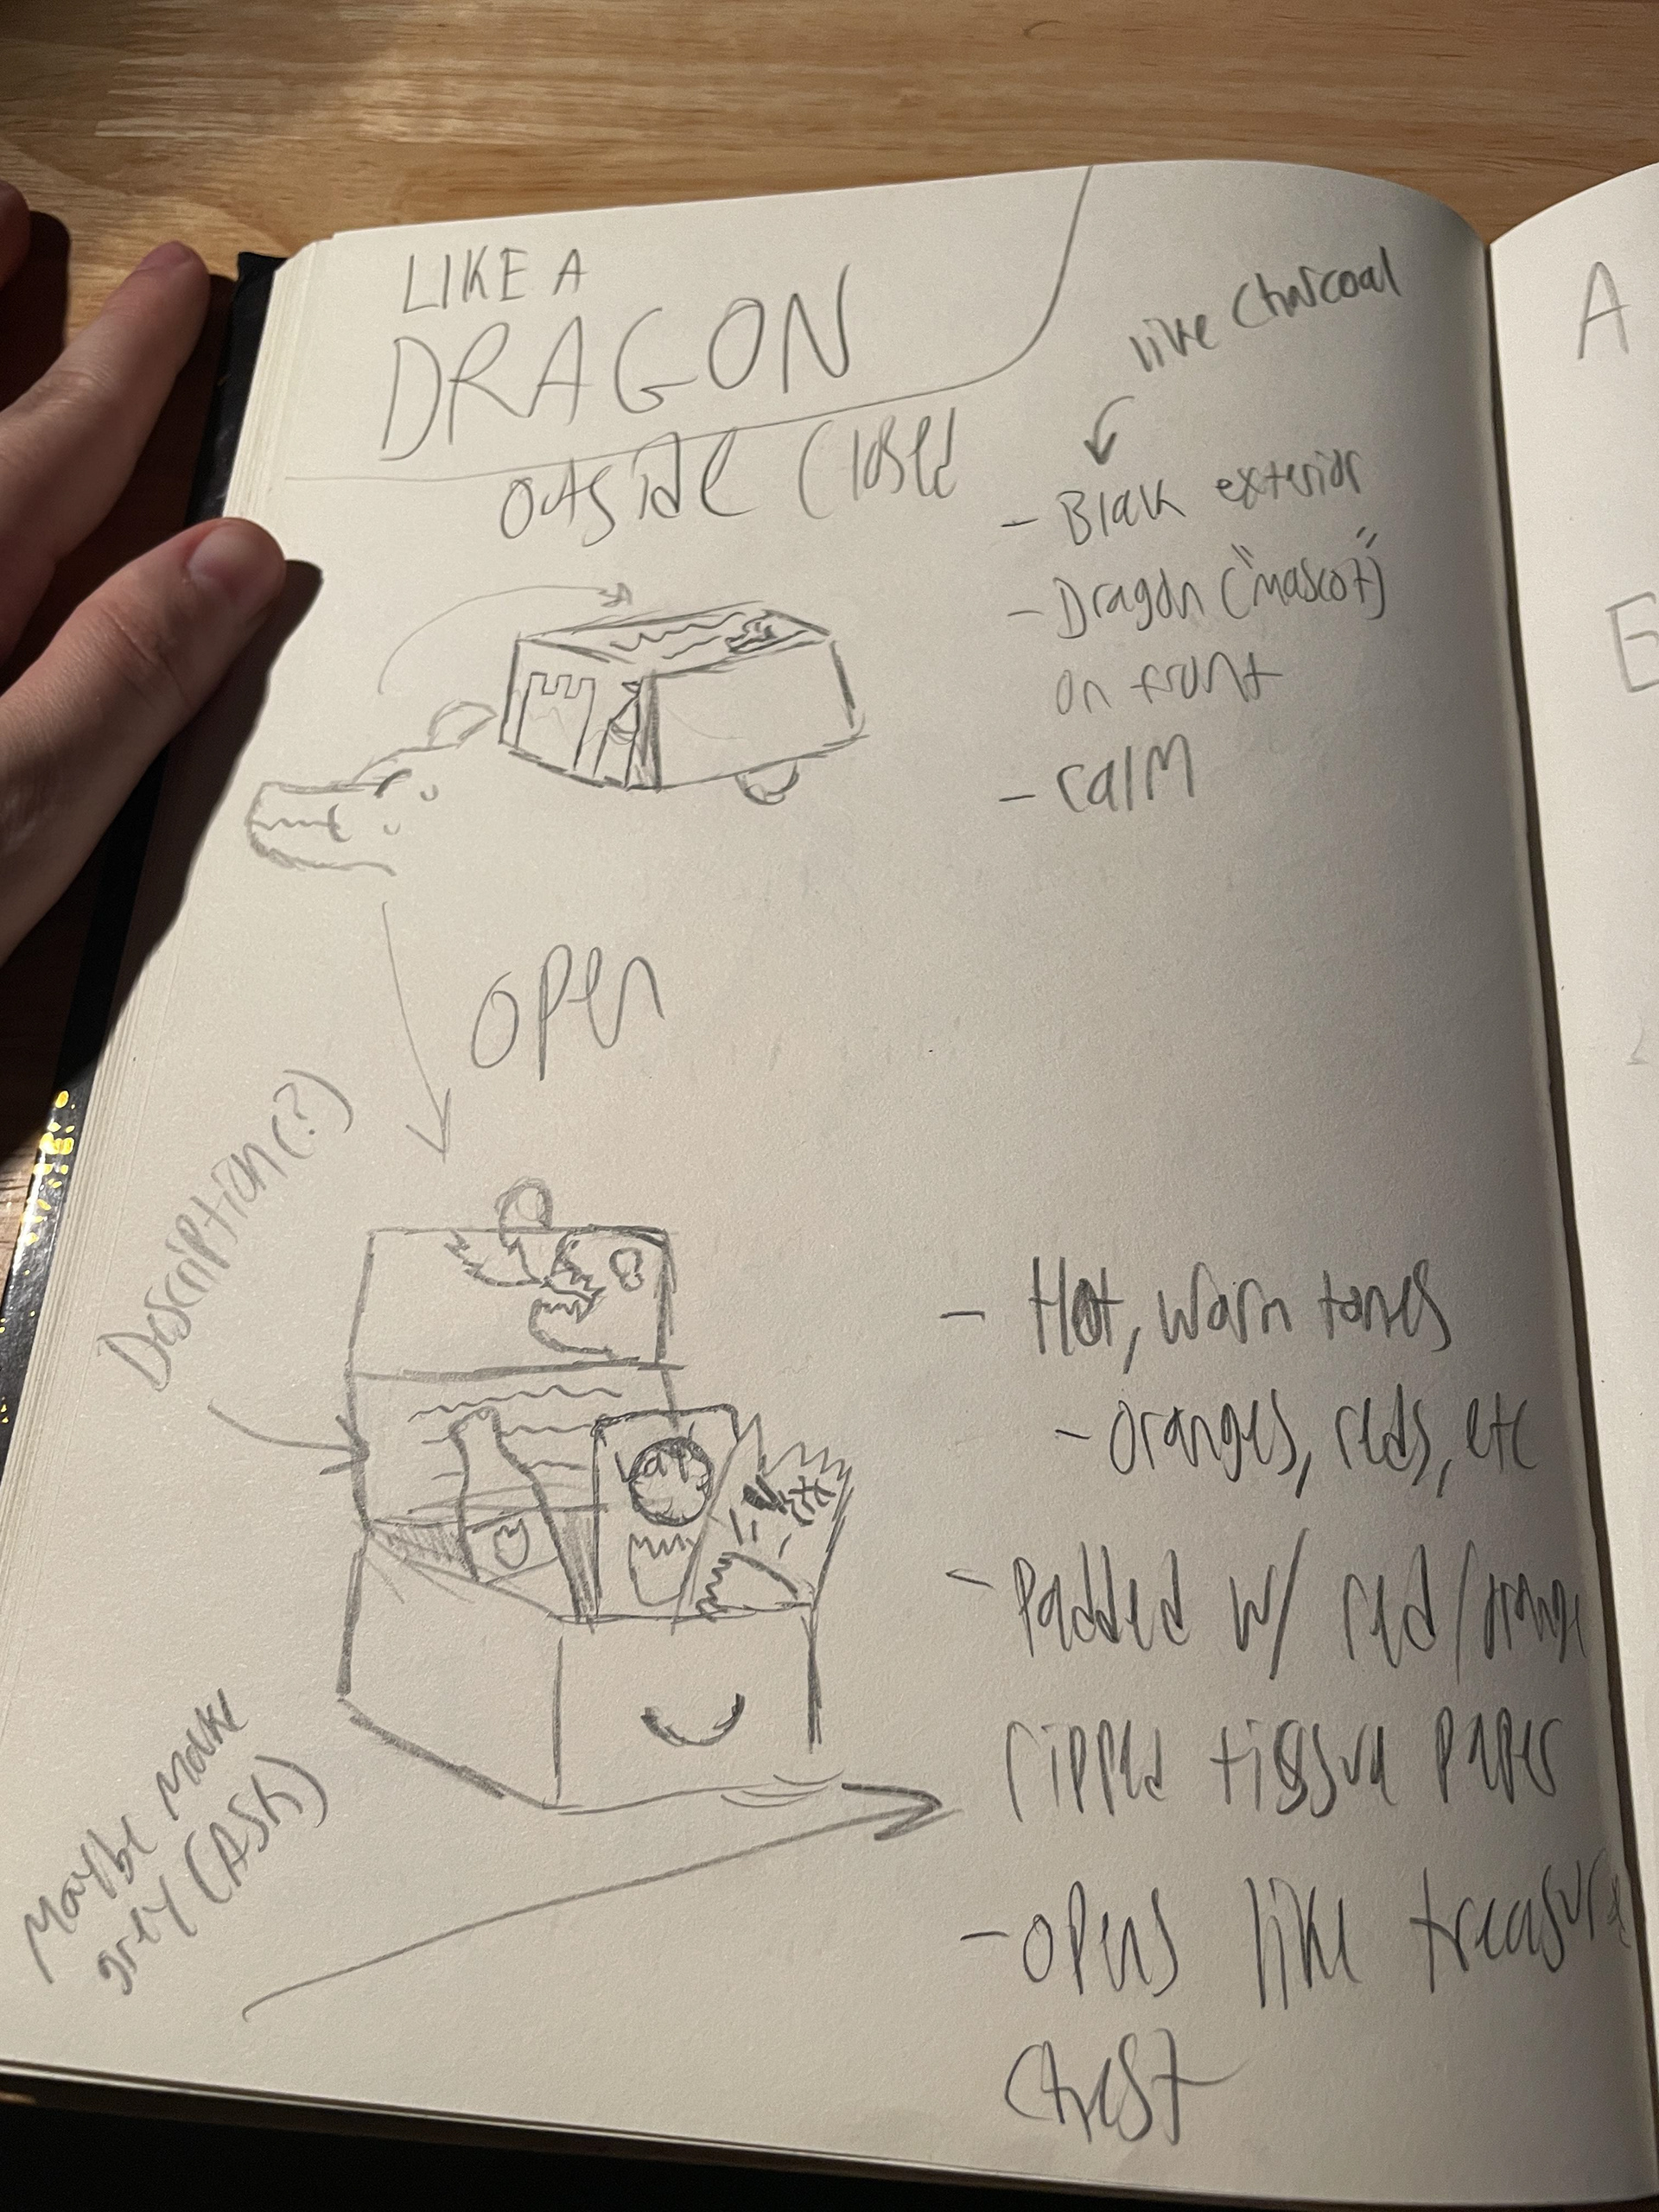 LIKE A
DRAGON
outside closed
like charcoal
- Black exterior
- Dragon ("mascot")
on front
- calm
open
Description(?)
- Hot, warm tones
- oranges, reds, etc
- Padded w/ red/orange
ripped tissue paper
- opens like treasure
chest
Maybe make
grey (ASK)
A
E